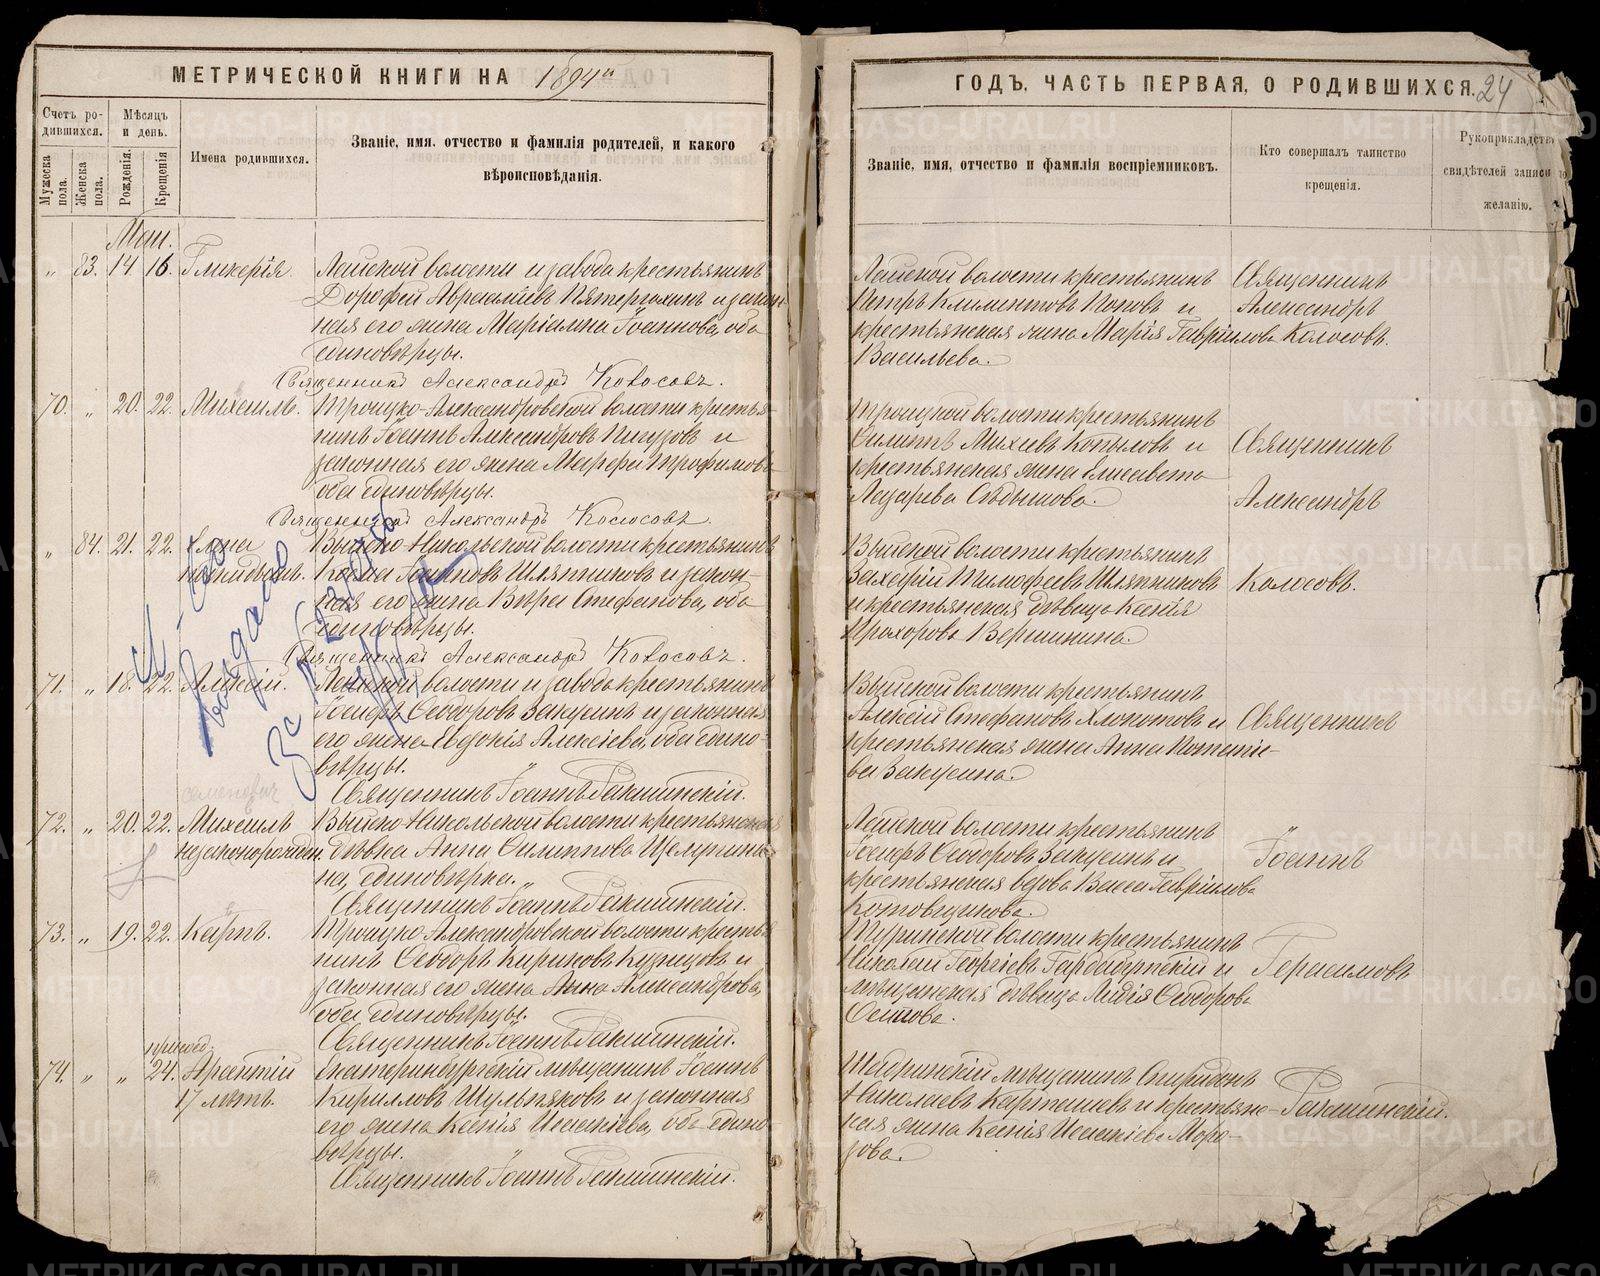 МЕТРИЧЕСКОЙ КНИГИ НА 1894й
Счетъ родившихся.
Мѣсяцъ и день.
Мужеска пола.
Женска пола.
Рожденія.
Крещенія
Имена родившихся.
Званіе, имя, отчество и фамилія родителей, и какого
вѣроисповѣданія.
Маи.
„ 83. 14. 16. Гликерія. Лайской волости и завода крестьянинъ
Дорофей Авраамьевъ и закон
ная его жена Маріамна Іоаннова, оба
единовѣрцы.
Священникъ Александръ Колосовъ.
70. „ 20. 22. Михаилъ. Троицко-Александровской волости крестья-
нинъ Іоаннъ Александровъ Пигузовъ и
законная его жена Марфа Трофимова
оба единовѣрцы.
Священникъ Александръ Колосовъ.
„ 84. 21. 22. Елена Выйско-Никольской волости крестьянинъ
Косма Іоанновъ Шляпниковъ и закон-
ная его жена Вѣра Стефанова, оба
единовѣрцы.
Священникъ Александръ Колосовъ.
71. „ 18. 22. Алексій. Лайской волости и завода крестьянинъ
Іосифъ Ѳеодоровъ Закусинъ и законная
его жена Евдокія Алексіева, оба едино-
вѣрцы.
Священникъ Іоаннъ
семенович
72. „ 20. 22. Михаилъ Выйско-Никольской волости крестьянская
незаконорожден. дѣвка Анна Филиппова
на, единовѣрка.
Священникъ Іоаннъ
73. „ 19. 22. Карпъ. Троицко-Александровской волости крестья
нинъ Ѳеодоръ Кириковъ Кузнецовъ и
законная его жена Анна Александрова,
оба единовѣрцы.
Священникъ Іоаннъ
присоед.
74. „ „ 24. Арсентій Екатеринбургскій мѣщанинъ Іоаннъ
17 лѣтъ. Кирилловъ Шульпяковъ и законная
его жена Ксенія Исаакіева, оба едино-
вѣрцы.
Священникъ Іоаннъ
выдано
за №
ГОДЪ, ЧАСТЬ ПЕРВАЯ, О РОДИВШИХСЯ. 24
Званіе, имя, отчество и фамилія воспріемниковъ.
Кто совершалъ таинство
крещенія.
Рукоприкладство
свидѣтелей записи по
желанію.
Лайской волости крестьянинъ
Петръ Климентовъ Поповъ и
крестьянская жена Марія Гавріилова
Васильева.
Священникъ
Александръ
Колосовъ.
Троицкой волости крестьянинъ
Филиппъ Михеевъ Копыловъ и
крестьянская жена Елисавета
Лазарева Сѣдышова.
Священникъ
Александръ
Выйской волости крестьянинъ
Захарій Тимофеевъ Шляпниковъ
и крестьянская дѣвица Ксенія
Прохорова Вершинина.
Колосовъ.
Выйской волости крестьянинъ
Алексій Стефановъ Хлопотовъ и
крестьянская жена Анна Потапіе-
ва Закусина.
Священникъ
Лайской волости крестьянинъ
Іосифъ Ѳеодоровъ Закусинъ и
крестьянская вдова Васса Гавріилова
Котовщикова.
Іоаннъ
Туринской волости крестьянинъ
Николай Георгіевъ и
мѣщанская дѣвица Лидія Ѳеодорова
Герасимовъ
Шадринскій мѣщанинъ Спиридонъ
Николаевъ Карташевъ и крестьянс-
кая жена Ксенія Исаакіева Моро-
зова.
METRIKI.GASO-URAL.RU